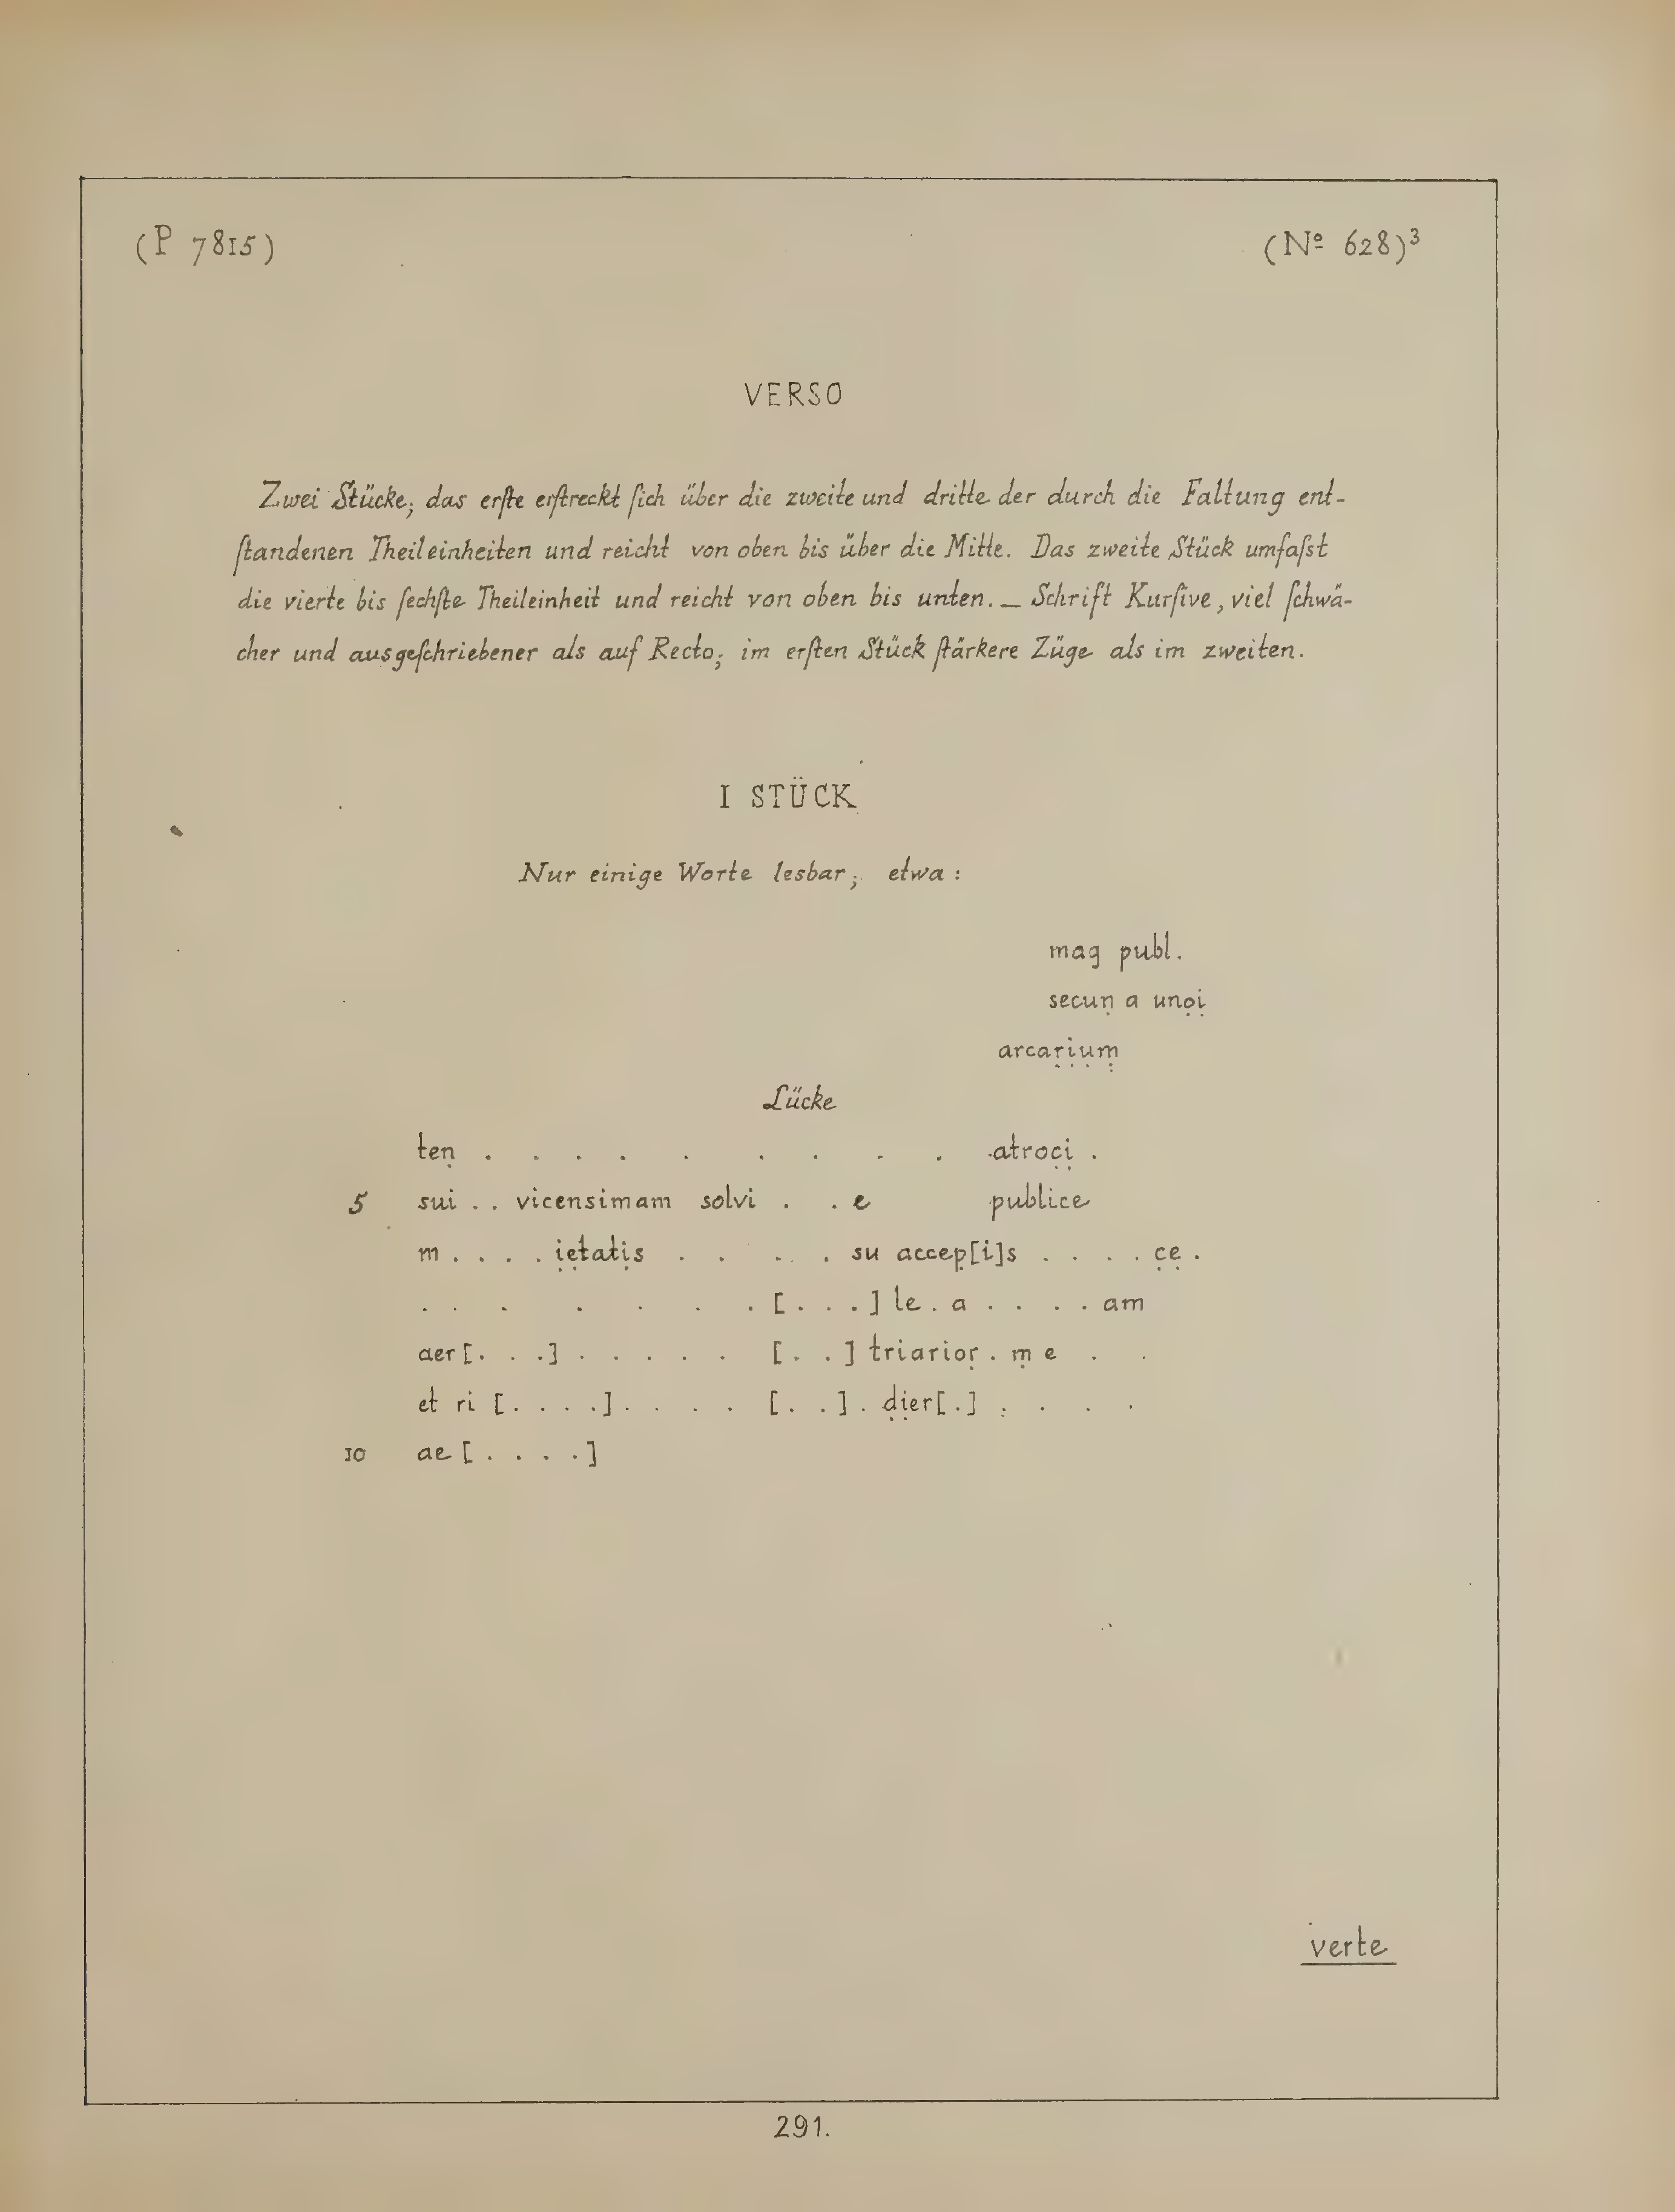 (P 7815) (Nº 628)³
VERSO
Zwei Stücke; das erſte erſtreckt ſich über die zweite und dritte der durch die Faltung ent-
ſtandenen Theileinheiten und reicht von oben bis über die Mitte. Das zweite Stück umfaſst
die vierte bis ſechſte Theileinheit und reicht von oben bis unten. — Schrift Kurſive, viel ſchwä-
cher und ausgeſchriebener als auf Recto; im erſten Stück ſtärkere Züge als im zweiten.
I STÜCK
Nur einige Worte lesbar; etwa:
mag publ.
secuṇ a unọị
arcaṛịụṃ
Lücke
teṇ . . . . . . . . . atroc̣ị .
5 sui . . vicensimam solvi . . e publice
m . . . . ịẹtatịs . . . . su accep̣[i]s . . . . c̣ẹ .
. . . . . . . [. . .] le . a . . . . am
aer[. . .] . . . . . [. . .] triarioṛ . ṃ e . .
et ri [. . . .] . . . . [. . .] . ḍịer[.] . . . .
10 ae [. . . .]
verte
291.